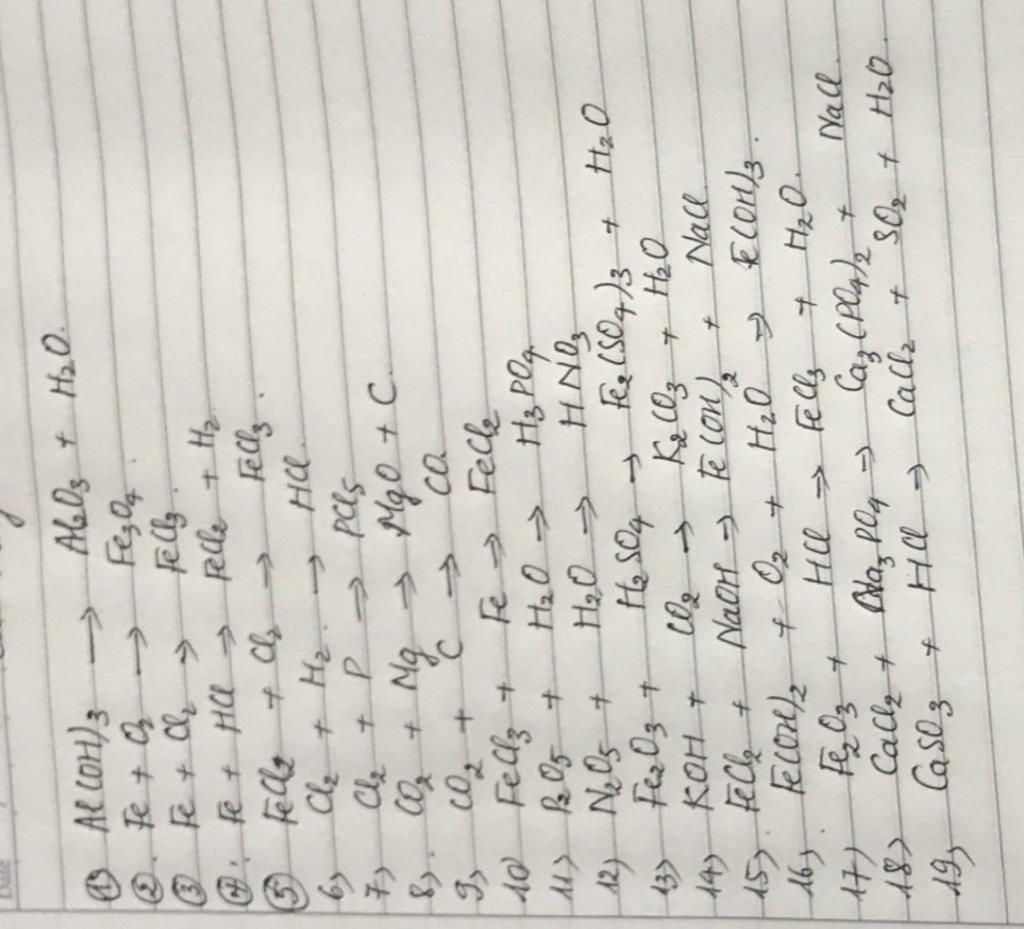 Date
① Al(OH)₃ → Al₂O₃ + H₂O.
②. Fe + O₂ → Fe₃O₄.
③ Fe + Cl₂ → FeCl₃.
④. Fe + HCl → FeCl₂ + H₂
⑤ FeCl₂ + Cl₂ → FeCl₃.
6, Cl₂ + H₂. → HCl
7, Cl₂ + P → PCl₅
8, CO₂ + Mg → MgO + C.
9, CO₂ + C → CO.
10 FeCl₃ + Fe → FeCl₂
11, P₂O₅ + H₂O → H₃PO₄
12, N₂O₅ + H₂O → HNO₃
13, Fe₂O₃ + H₂SO₄ → Fe₂(SO₄)₃ + H₂O
14, KOH + CO₂ → K₂CO₃ + H₂O
15, FeCl₂ + NaOH → Fe(OH)₂ + NaCl
16, Fe(OH)₂ + O₂ + H₂O → Fe(OH)₃.
17, Fe₂O₃ + HCl → FeCl₃ + H₂O.
18, CaCl₂ + Na₃PO₄ → Ca₃(PO₄)₂ + NaCl.
19, CaSO₃ + HCl → CaCl₂ + SO₂ + H₂O.